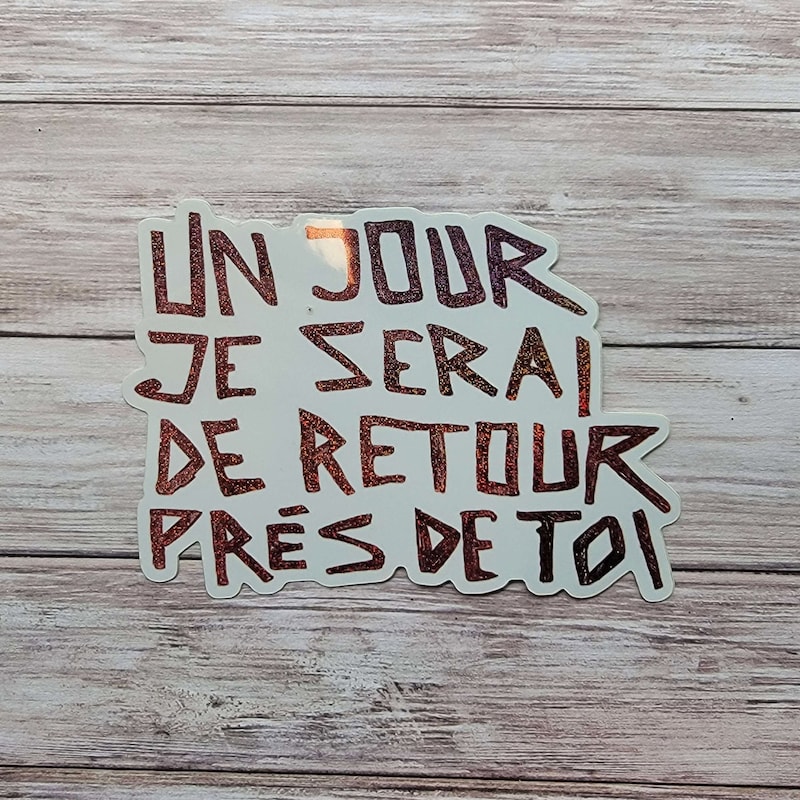 UN JOUR
JE SERAI
DE RETOUR
PRÉS DE TOI